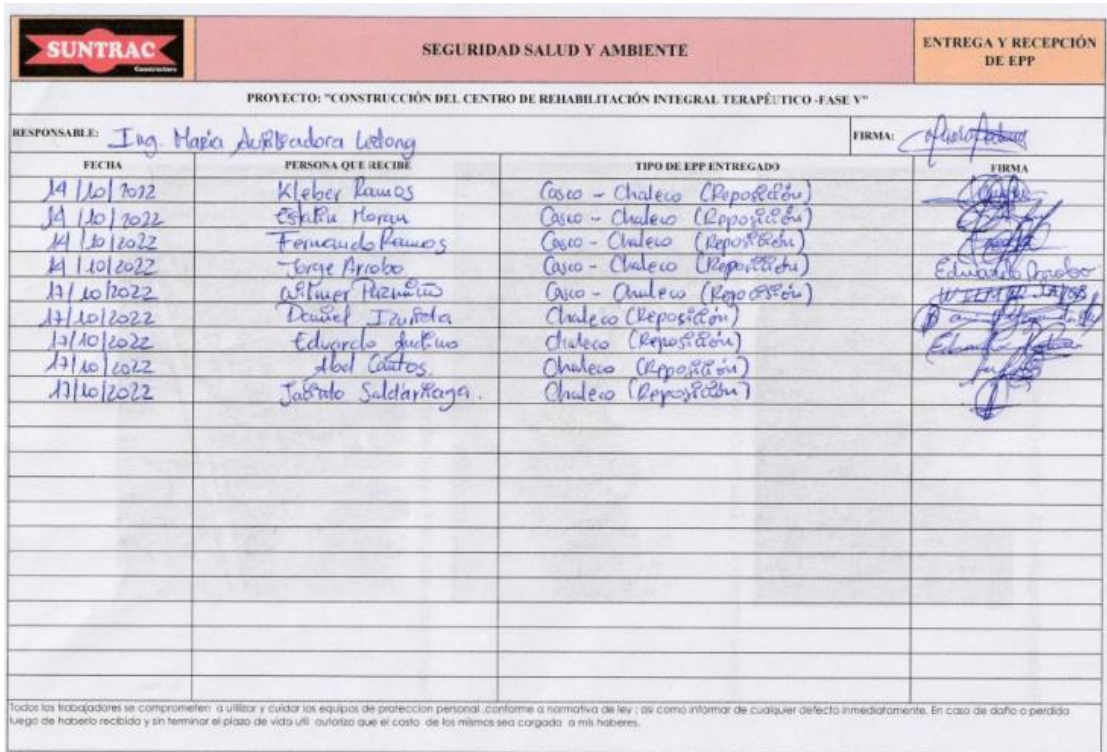 SUNTRAC
Constructora
SEGURIDAD SALUD Y AMBIENTE
ENTREGA Y RECEPCIÓN
DE EPP
PROYECTO: "CONSTRUCCIÓN DEL CENTRO DE REHABILITACIÓN INTEGRAL TERAPÉUTICO -FASE V"
RESPONSABLE: Ing. María Auxiliadora FIRMA:
FECHA PERSONA QUE RECIBE TIPO DE EPP ENTREGADO FIRMA
14/10/2022 Kleber Ramos Casco - Chaleco (Reposición)
14/10/2022 Moran Casco - Chaleco (Reposición)
14/10/2022 Fernando Ramos Casco - Chaleco (Reposición)
14/10/2022 Jorge Arrobo Casco - Chaleco (Reposición) Eduardo Arrobo
17/10/2022 Wilmer Casco - Chaleco (Reposición)
17/10/2022 Daniel Chaleco (Reposición)
17/10/2022 Eduardo Chaleco (Reposición)
17/10/2022 Abel Cantos. Chaleco (Reposición)
17/10/2022 Saldarriaga. Chaleco (Reposición)
Todos los trabajadores se comprometen a utilizar y cuidar los equipos de proteccion personal ,conforme a normativa de ley ; asi como informar de cualquier defecto inmediatamente. En caso de daño o perdida
luego de haberlo recibido y sin terminar el plazo de vida util autorizo que el costo de los mismos sea cargado a mis haberes.